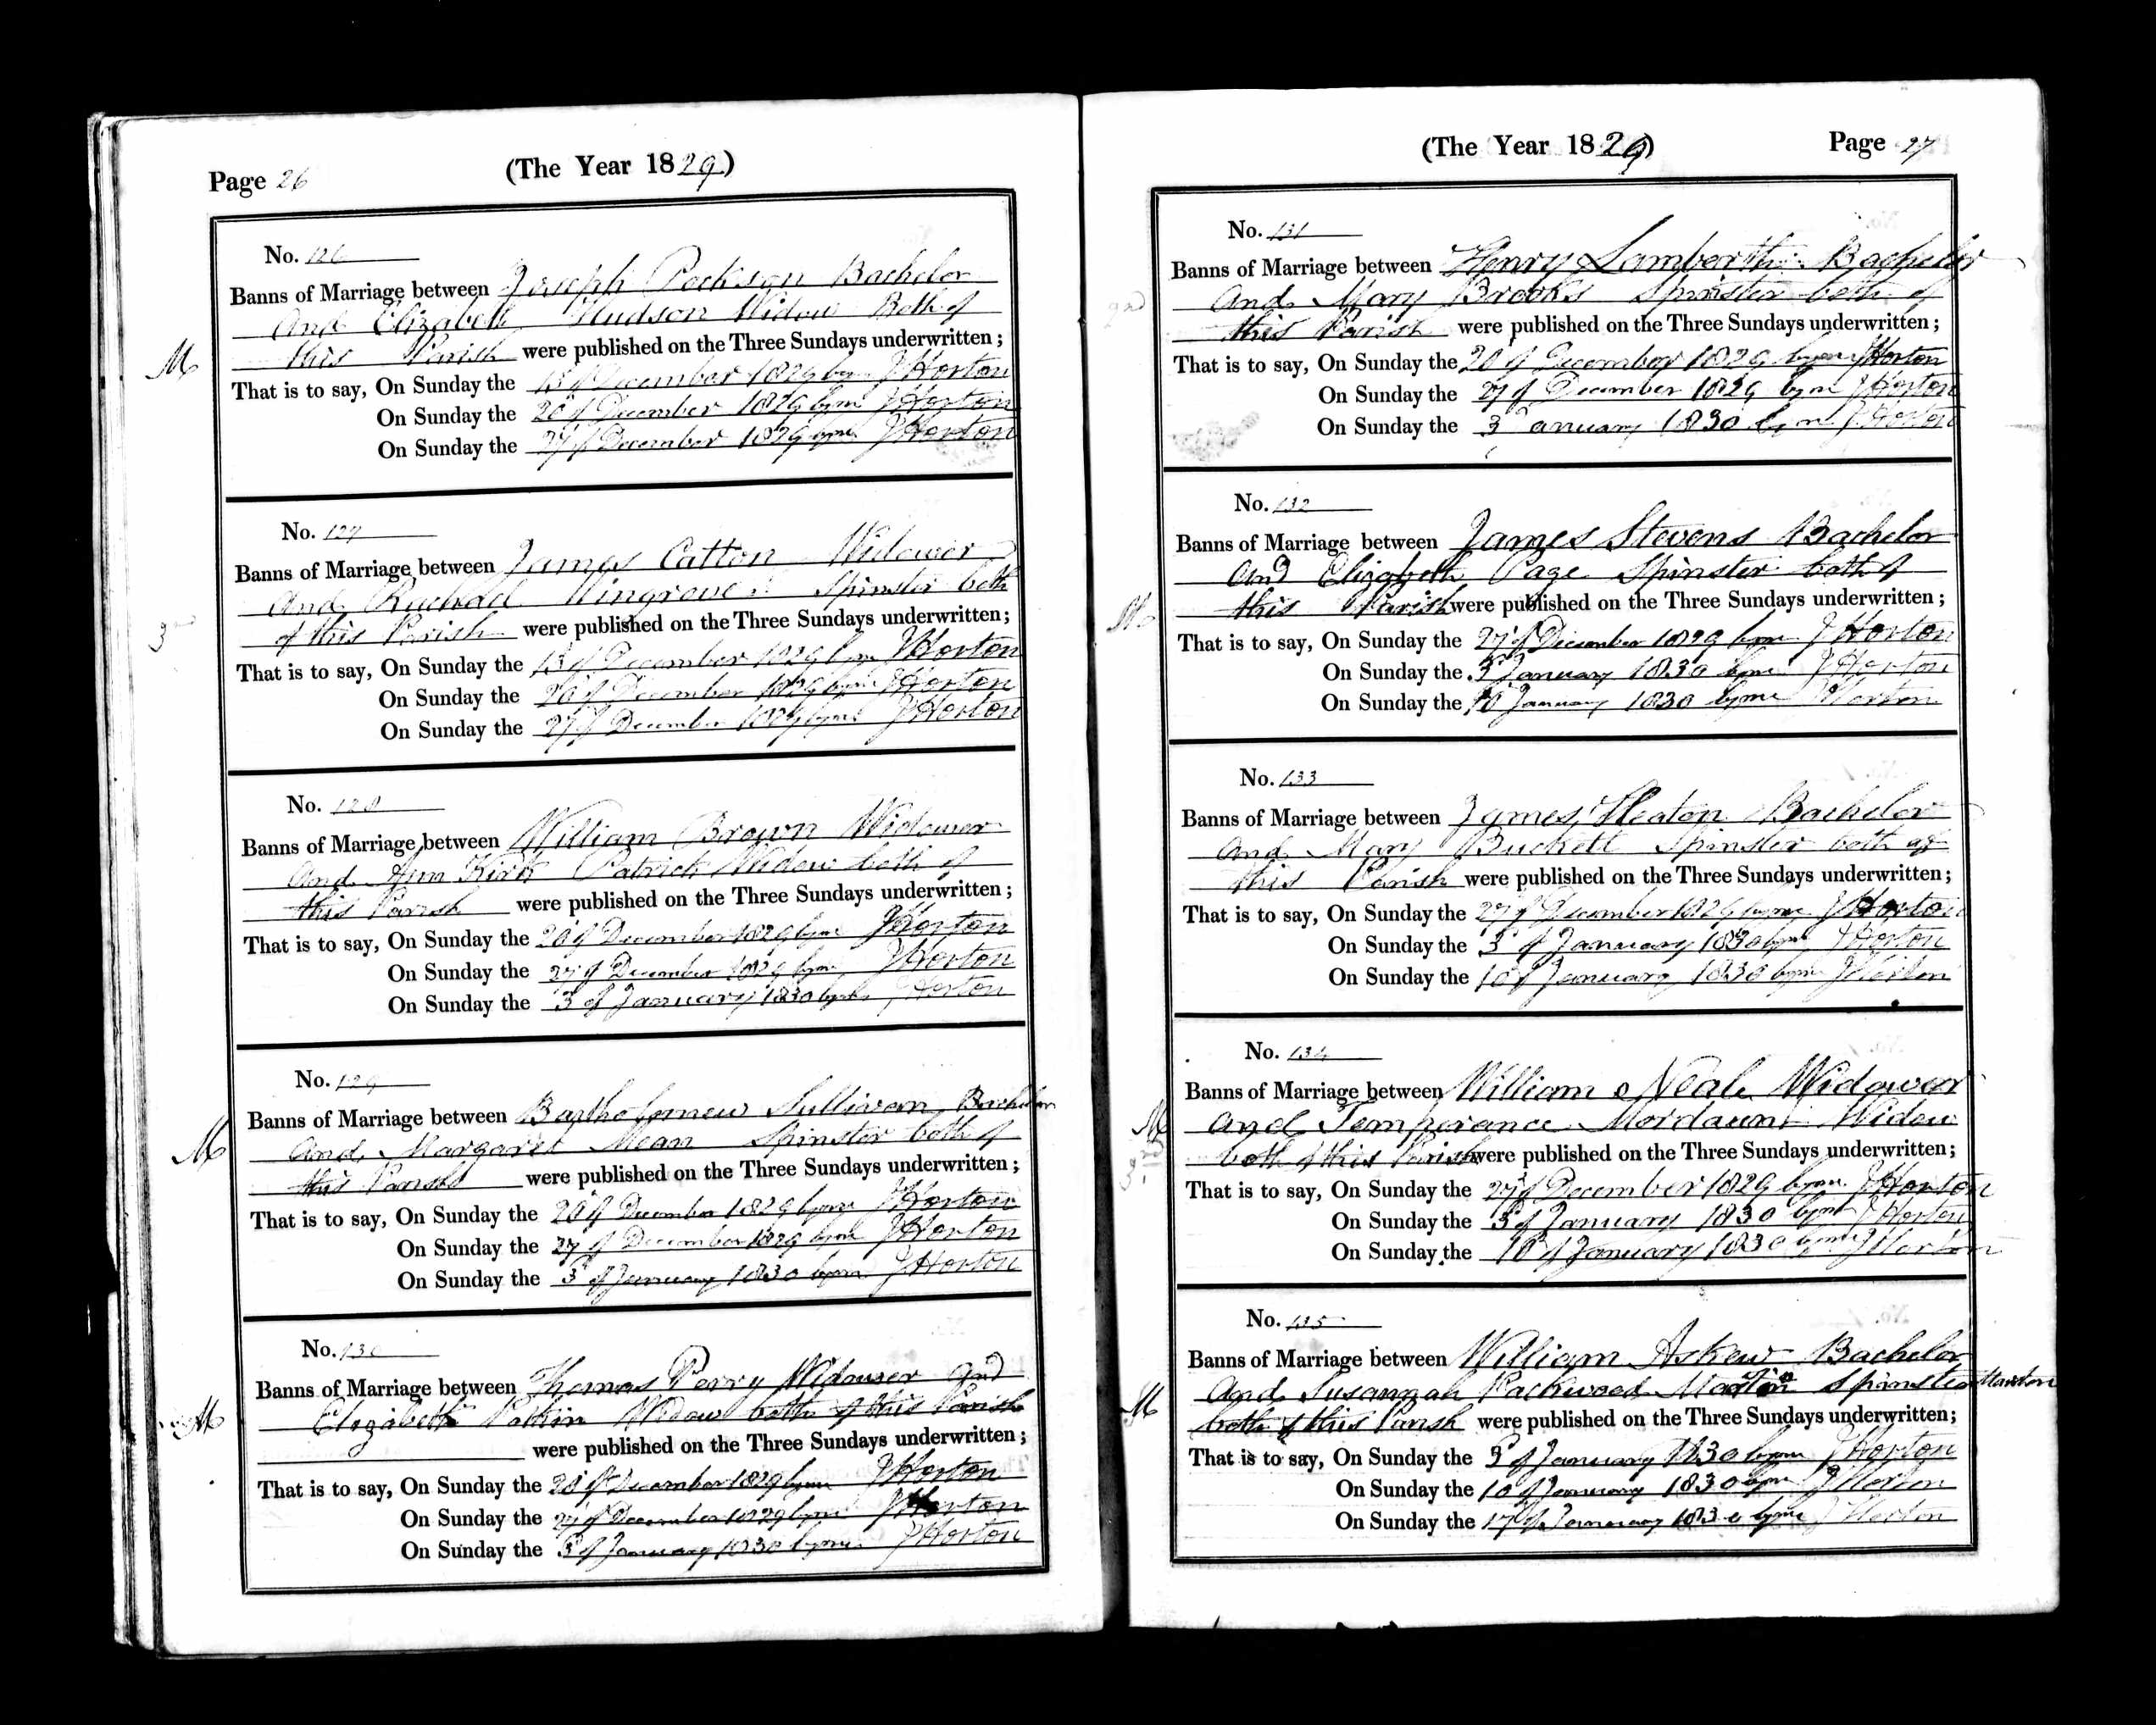 Page 26
(The Year 1829)
No. 126
Banns of Marriage between Joseph Bachelor
And Elizabeth Hudson Widow Both of
this Parish were published on the Three Sundays underwritten;
M
That is to say, On Sunday the 13 of December 1829 by me J Horton
On Sunday the 20 of December 1829 by me J Horton
On Sunday the 27 of December 1829 by me J Horton
No. 127
Banns of Marriage between James Catton Widower
And Rachael Wingrove Spinster both
of this Parish were published on the Three Sundays underwritten;
That is to say, On Sunday the 13 of December 1829 by me J Horton
On Sunday the 20 of December 1829 by me J Horton
On Sunday the 27 of December 1829 by me J Horton
No. 128
Banns of Marriage between William Brown Widower
And Ann Kirk Patrick Widow both of
this Parish were published on the Three Sundays underwritten;
That is to say, On Sunday the 20 of December 1829 by me J Horton
On Sunday the 27 of December 1829 by me J Horton
On Sunday the 3 of January 1830 by me J Horton
No. 129
Banns of Marriage between Bartholomew Sullivan Bachelor
And Margaret Mean Spinster both of
M
this Parish were published on the Three Sundays underwritten;
That is to say, On Sunday the 20 of December 1829 by me J Horton
On Sunday the 27 of December 1829 by me J Horton
On Sunday the 3 of January 1830 by me J Horton
No. 130
Banns of Marriage between Thomas Perry Widower and
M
Elizabeth Widow both of this Parish
were published on the Three Sundays underwritten;
That is to say, On Sunday the 20 of December 1829 by me J Horton
On Sunday the 27 of December 1829 by me J Horton
On Sunday the 3 of January 1830 by me J Horton
(The Year 1829)
Page 27
No. 131
Banns of Marriage between Henry Lamberth Bachelor
And Mary Brooks Spinster both of
this Parish were published on the Three Sundays underwritten;
That is to say, On Sunday the 20 of December 1829 by me J Horton
On Sunday the 27 of December 1829 by me J Horton
On Sunday the 3 January 1830 by me J Horton
No. 132
Banns of Marriage between James Stevens Bachelor
And Elizabeth Page Spinster both of
M
this Parish were published on the Three Sundays underwritten;
That is to say, On Sunday the 27 of December 1829 by me J Horton
On Sunday the 3 January 1830 by me J Horton
On Sunday the 10 January 1830 by me J Horton
No. 133
Banns of Marriage between James Heaton Bachelor
And Mary Buckett Spinster both of
this Parish were published on the Three Sundays underwritten;
That is to say, On Sunday the 27 of December 1829 by me J Horton
On Sunday the 3 of January 1830 by me J Horton
On Sunday the 10 of January 1830 by me J Horton
No. 134
Banns of Marriage between William Neale Widower
M
And Temperance Mordaunt Widow
both of this Parish were published on the Three Sundays underwritten;
That is to say, On Sunday the 27 of December 1829 by me J Horton
On Sunday the 3 of January 1830 by me J Horton
On Sunday the 10 of January 1830 by me J Horton
No. 135
Banns of Marriage between William Askew Bachelor
And Susannah Packwood Spinster
M
both of this Parish were published on the Three Sundays underwritten;
That is to say, On Sunday the 3 of January 1830 by me J Horton
On Sunday the 10 of January 1830 by me J Horton
On Sunday the 17 of January 1830 by me J Horton